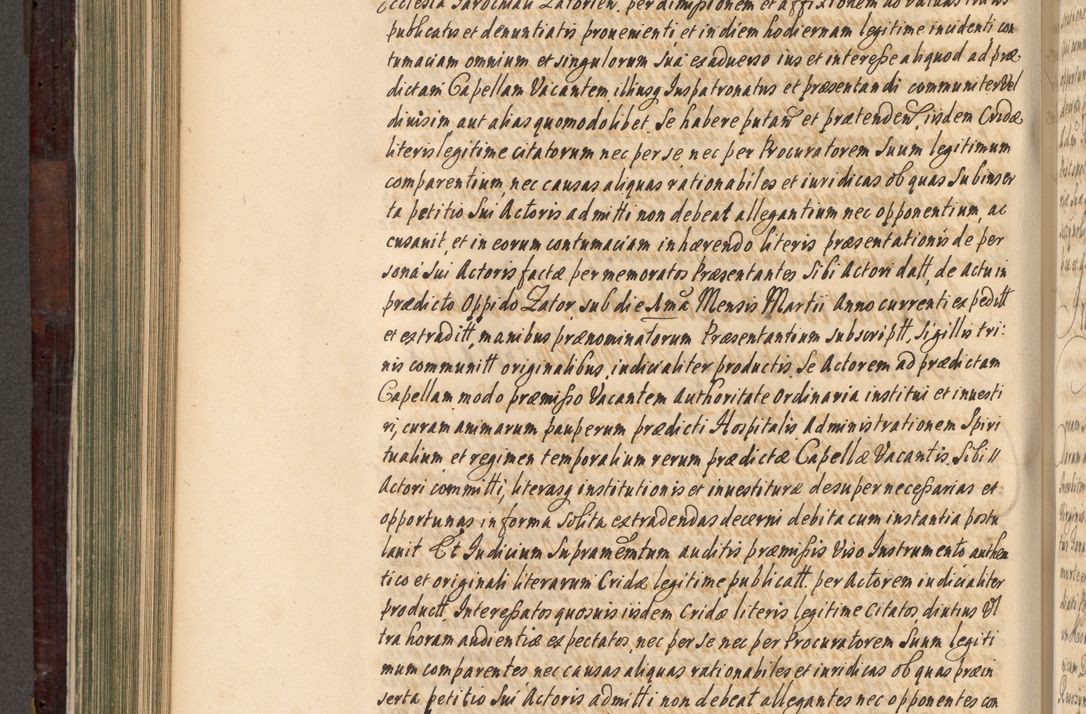 Ecclesia Parochiali Zatorien. per dimissionem et affixionem ad valvas
publicatis et denuntiatis provenienti, et in diem hodiernam legitime incidenti con
tumaciam omnium et singulorum sua ex adverso ius et interesse aliquod ad præ
dictam Capellam Vacantem illiusq Juspatronatus et præsentandi communiter Vel
divisim aut alias quomodolibet se habere putan et prætenden, iisdem Cridæ
literis legitime citatorum nec per se nec per Procuratorem suum legitimum
comparentium, nec causas aliquas rationabiles et iuridicas ob quas subinser
ta petitio sui Actoris admitti non debeat allegantium nec opponentium, ac
cusavit, et in eorum contumaciam inhærendo literis præsentationis de per
sona sui Actoris factæ per memoratos Præsentantes sibi Actori datt, de actu in
prædicto Oppido Zator sub die Ama Mensis Martii Anno currenti expeditt
et extraditt, manibus prænominatorum Præsentantium subscriptt, Sigillis tri:
nis communitt originalibus, iudicialiter productis, se Actorem ad prædictam
Capellam modo præmisso Vacantem authoritate ordinaria institui et investi
ri, curam animarum pauperum prædicti Hospitalis Administrationem Spiri
tualium et regimen temporalium rerum prædictæ Capellæ Vacantis sibi
Actori committi, literasq institutionis et investituræ desuper necessarias et
opportunas in forma solita extradendas decerni debita cum instantia postu
lavit Et Judicium supramentum auditis præmissis Viso Instrumento authen
tico et originali literarum Cridæ legitime publicatt. per Actorem iudicialiter
productt, Interessatos quosvis iisdem Cridæ literis legitime Citatos, diutius Vl
tra horam audientiæ expectatos, nec per se nec per Procuratorem suum legiti
mum comparentes nec causas aliquas rationabiles et iuridicas ob quas præin
serta petitio sui Actoris admitti non debeat allegantes nec opponentes con